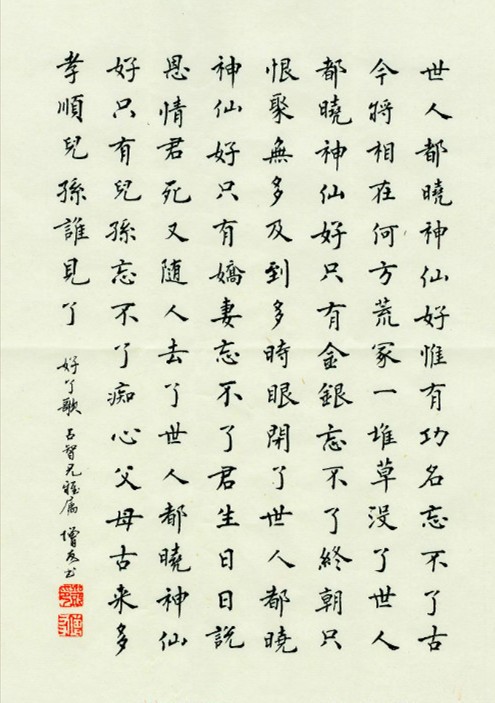 世人都曉神仙好惟有功名忘不了古
今將相在何方荒冢一堆草沒了世人
都曉神仙好只有金銀忘不了終朝只
恨聚無多及到多時眼閉了世人都曉
神仙好只有嬌妻忘不了君生日日說
恩情君死又随人去了世人都曉神仙
好只有兒孫忘不了痴心父母古来多
孝順兒孫誰見了
好了歌 智兄雅屬